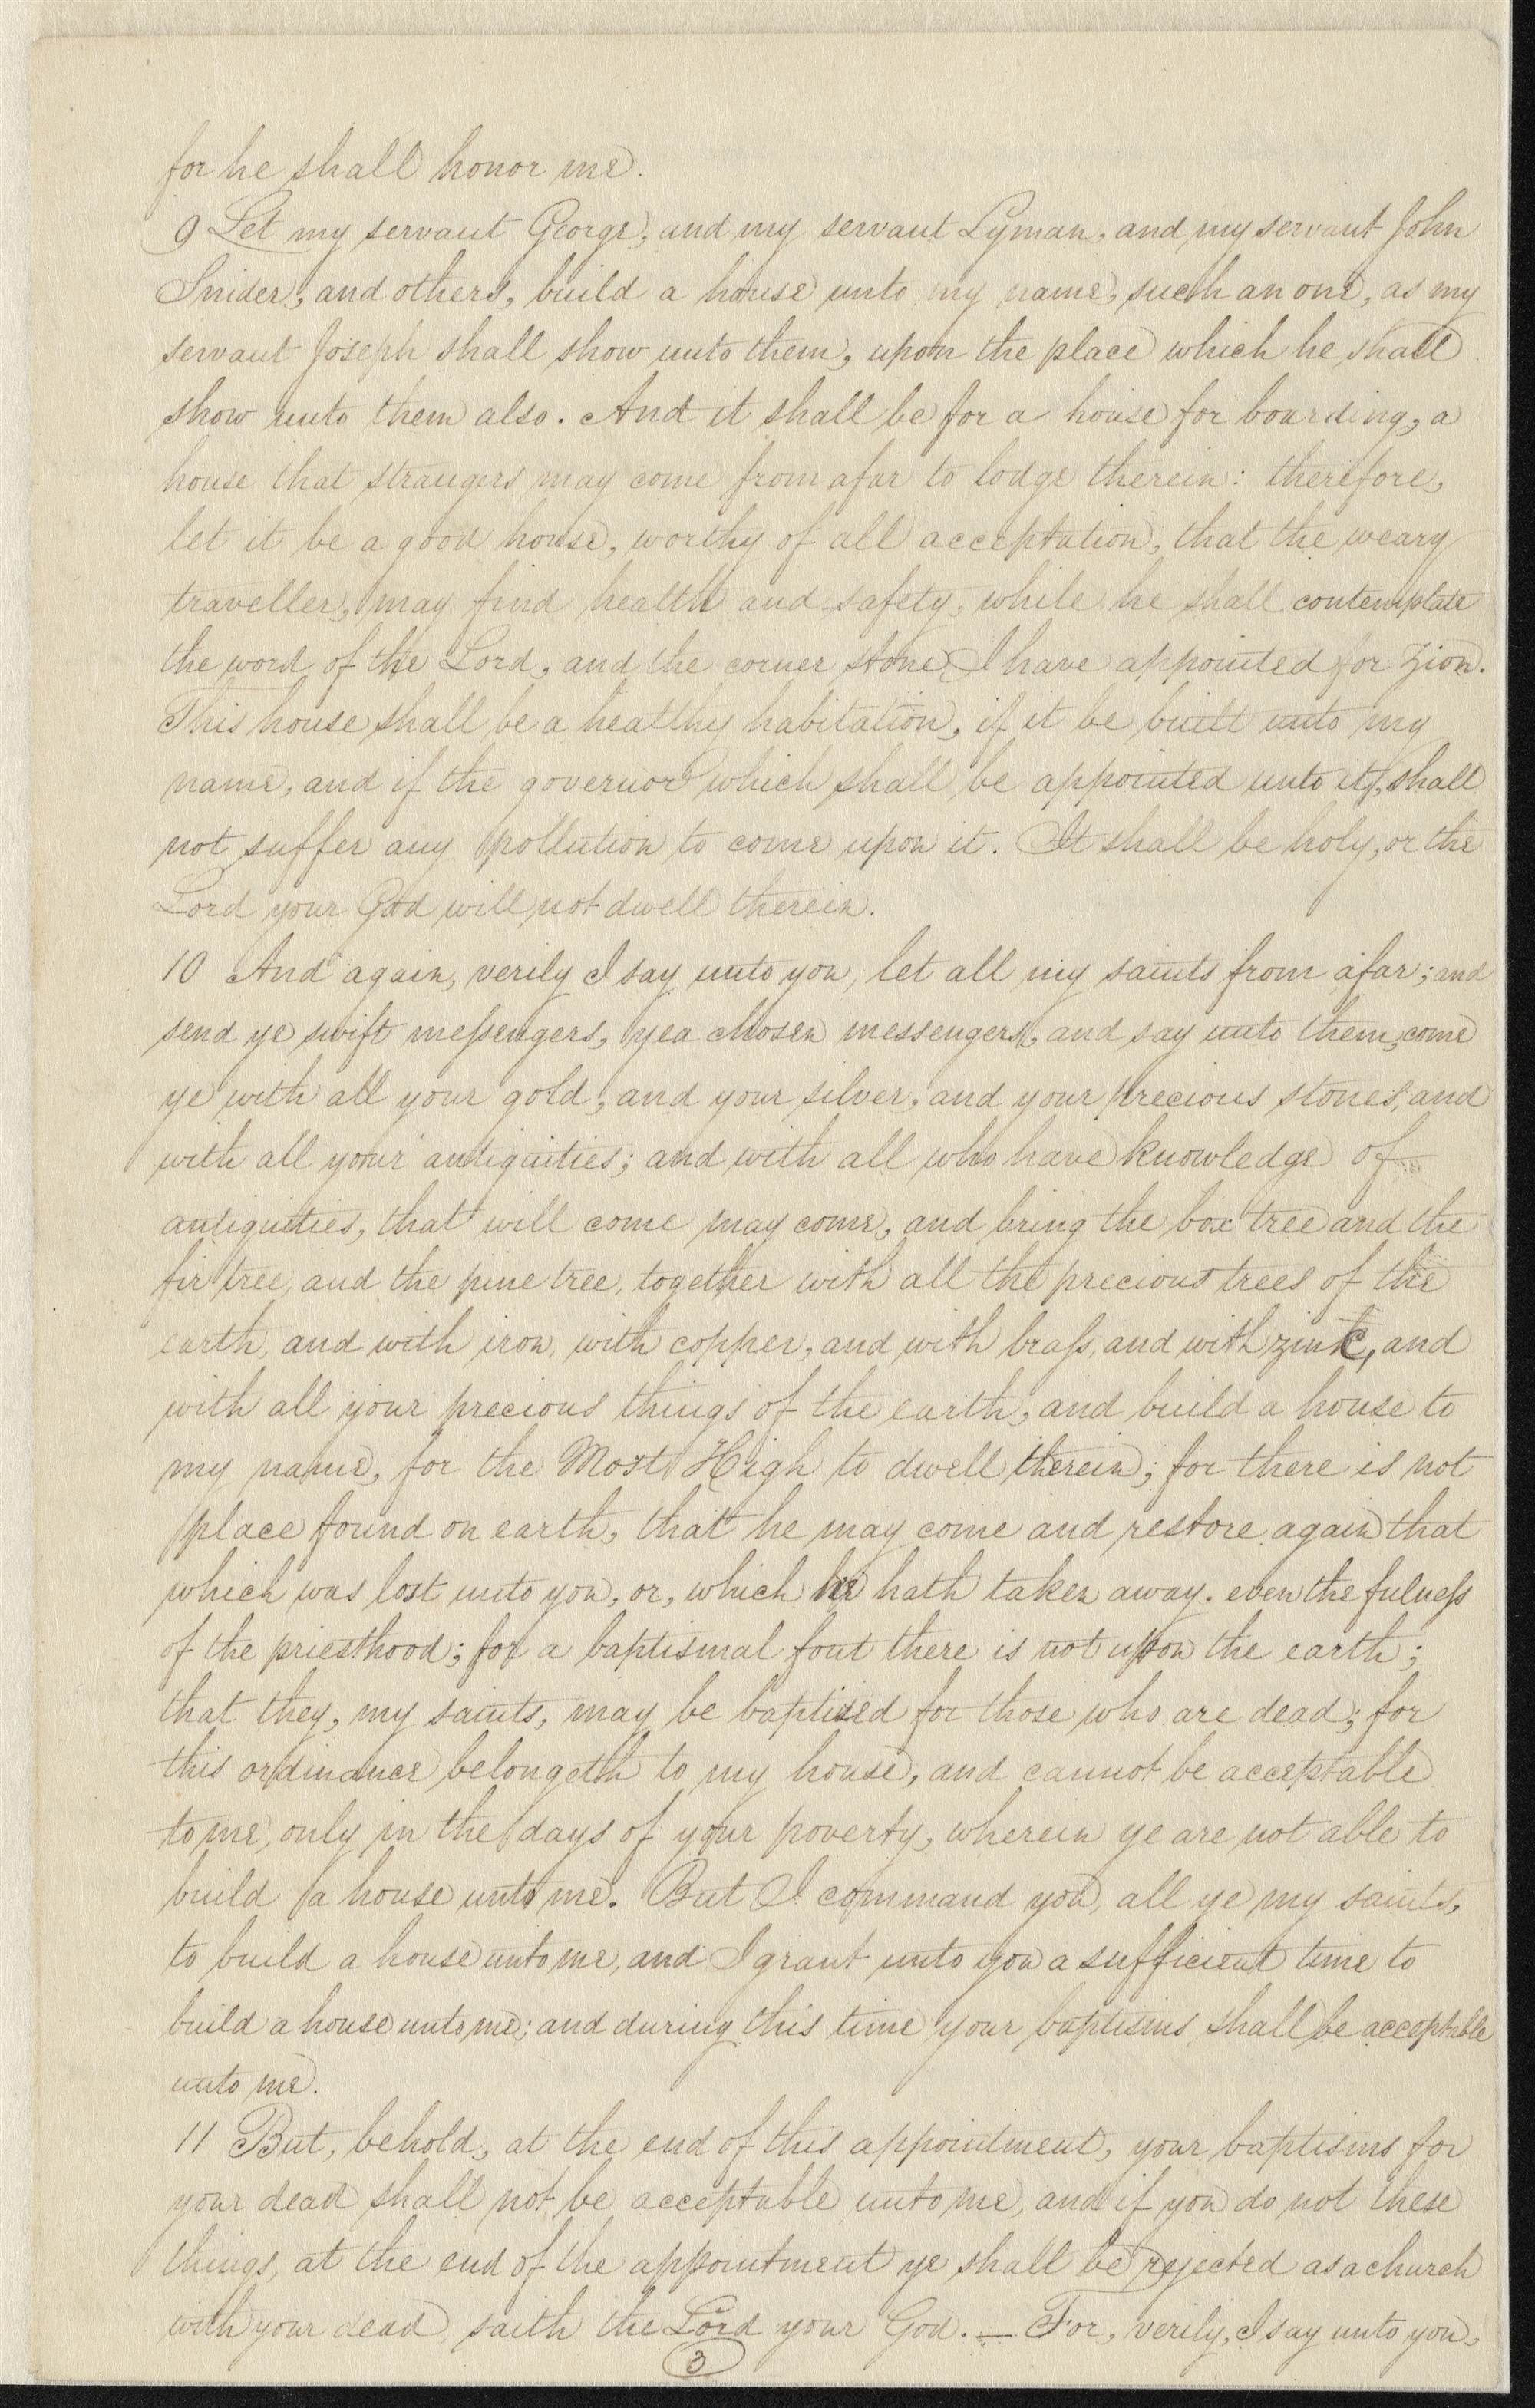 for he shall honor me.
9 Let my servant George, and my servant Lyman, and my servant John
Snider, and others, build a house unto my name, such an one, as my
servant Joseph shall show unto them, upon the place which he shall
show unto them also. And it shall be for a house for boarding, a
house that strangers may come from afar to lodge therein: therefore,
let it be a good house, worthy of all acceptation, that the weary
traveller, may find health and safety, while he shall contemplate
the word of the Lord, and the corner stone I have appointed for Zion.
This house shall be a healthy habitation, if it be built unto my
name, and if the governor which shall be appointed unto it, shall
not suffer any pollution to come upon it. It shall be holy, or the
Lord your God will not dwell therein.
10 And again, verily I say unto you, let all my saints from afar; and
send ye swift messengers, yea chosen messengers, and say unto them, come
ye with all your gold, and your silver, and your precious stones, and
with all your antiquities; and with all who have knowledge of
antiquities, that will come may come, and bring the box tree and the
fir tree, and the pine tree, together with all the precious trees of the
earth, and with iron, with copper, and with brass, and with zinc, and
with all your precious things of the earth, and build a house to
my name, for the Most High to dwell therein; for there is not
place found on earth, that he may come and restore again that
which was lost unto you, or, which he hath taken away. even the fulness
of the priesthood; for a baptismal font there is not upon the earth;
that they, my saints, may be baptized for those who are dead; for
this ordinance belongeth to my house, and cannot be acceptable
to me, only in the days of your poverty, wherein ye are not able to
build a house unto me. But I command you, all ye my saints,
to build a house unto me, and I grant unto you a sufficient time to
build a house unto me; and during this time your baptisms shall be acceptable
unto me.
11 But, behold, at the end of this appointment, your baptisms for
your dead shall not be acceptable unto me, and if you do not these
things, at the end of the appointment ye shall be rejected as a church
with your dead, saith the Lord your God. — For, verily, I say unto you,
3